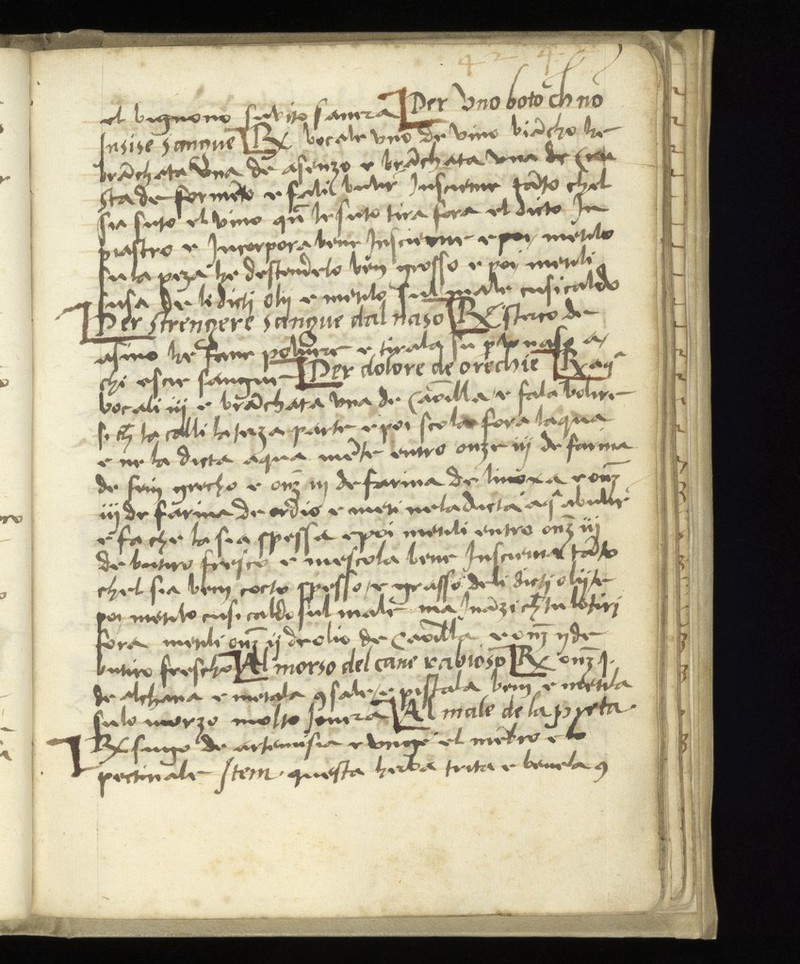 42
el bignono subito sanera Per uno boto ch nō
Insise sangue Rx vocale uno de vino biācho he
brāchata una de asenzo e brāchata una de
sta de formēto e fali buler Insieme tāto chel
sia suto el vino qñ le suto tira fora el dicto In
piastro e Incorpora bene Insieme e poi metilo
su la peza he destendelo ben grosso e poi metili
susa de li dicti olii e metilo sul male cusi caldo
Per strengere sangue dal naso Rx sterco de
asino he fane polvere e tirala su p lo naso a
chi escie sangue Per dolore de orechie Rx aq̄
vocali iij e brāchata una de Caōilla e fala bolire
si ch la calli la terza parte e poi scola fora laqua
e ne la dicta aqua mēte entro onze iij de farina
de fein grecho e onz iij de farina de linoxa e onz
iij de farina de ordio e meti nela dicta aq̄ a bulire
e fa che la sia spessa e poi metili entro onz iij
de butiro fresco e mescola bene Insieme tāto
chel sia ben cocto spesso e grasso de li dicti olii te
poi metilo cusi caldo sul male ma Ināzi ch tu lo tiri
fora metili onz ij de olio de Caōilla e onz ij de
butiro frescho Al morso del cane rabioso Rx onz j.
de alchana e metala 9 sale e pistala ben e metila
sulo morzo molto sanera Al male de la preta
Rx sugo de artemisia e unge el mēbro e lo
pectinale Item questa herba trita e bevela 9